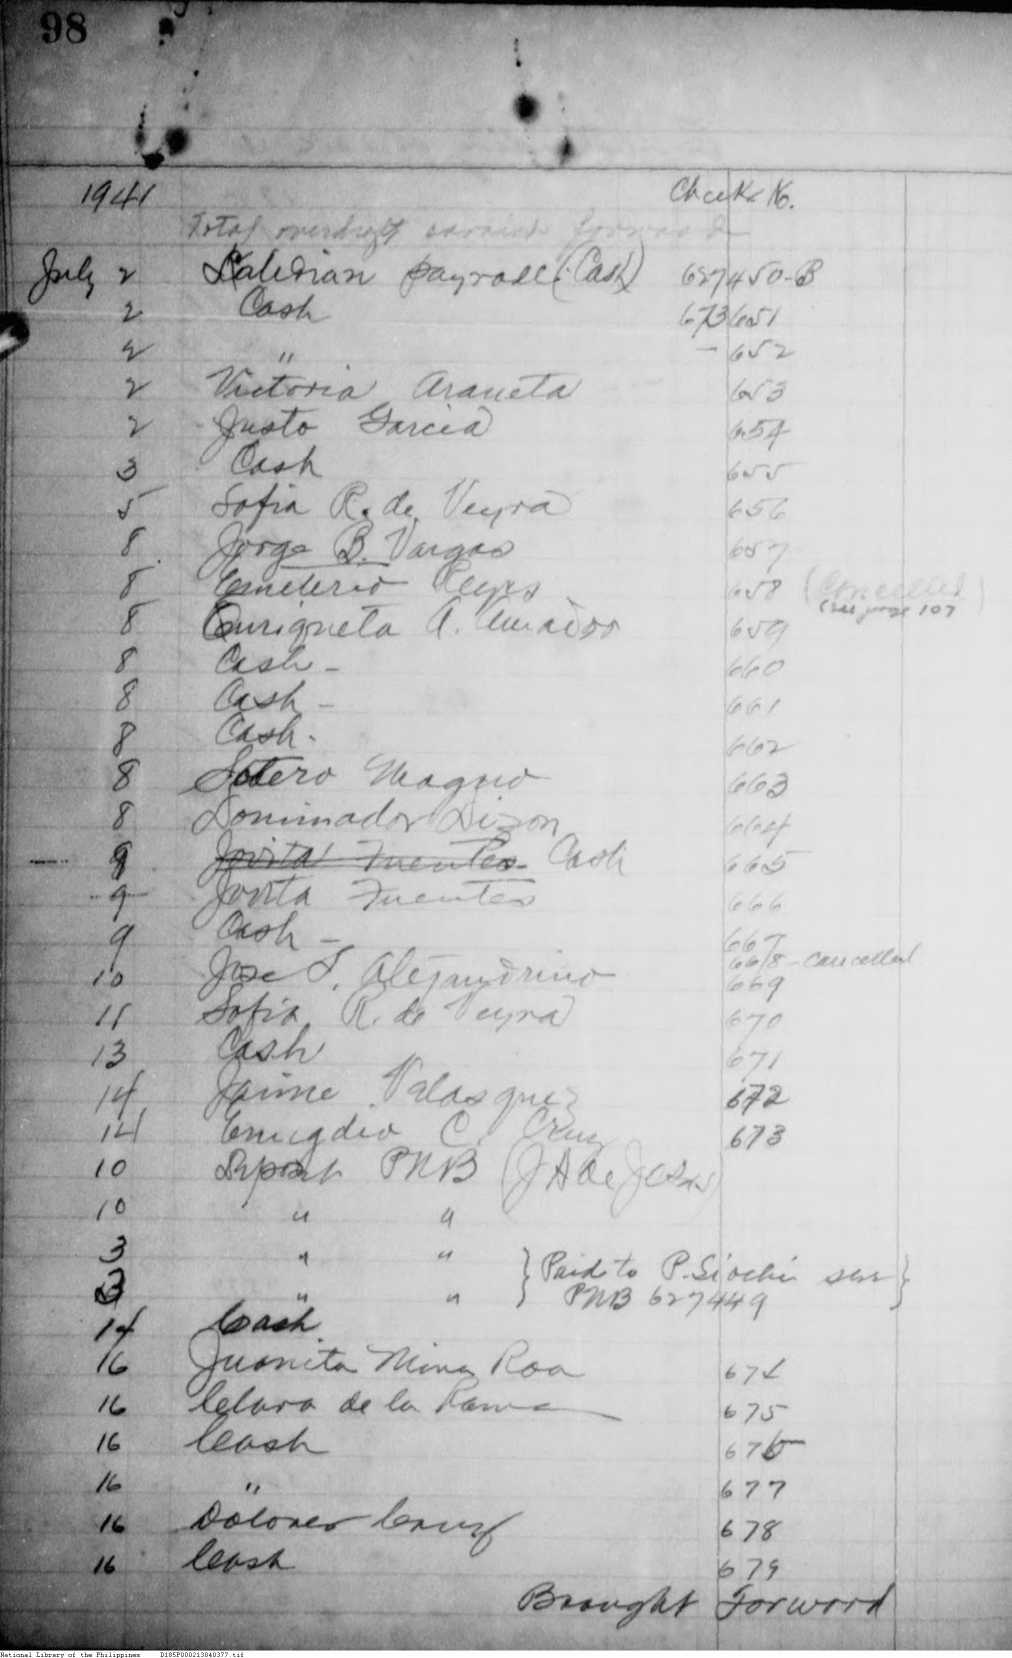 98
1941 Check No.
Total overdraft carried forward
July 2 Kalibian payroll (Cash) 627450-B
2 Cash 673651
2 " - 652
2 Victoria Araneta 653
2 Justo Garcia 654
3 Cash 655
5 Sofia R. de Veyra 656
8 Jorge B. Vargas 657
8 Emeterio Reyes 658 (Cancelled)
(See page 107
8 Enriqueta A. Amador 659
8 Cash - 660
8 Cash - 661
8 Cash. 662
8 Sotero Magno 663
8 Dominador Dizon 664
9 Jovita Fuentes Cash 665
9 Jovita Fuentes 666
9 Cash - 667
668 - cancelled
10 Jose S. Alejandrino 669
11 Sofia R. de Veyra 670
13 Cash 671
14 Jaime Velasquez 672
14 Emigdio C. Cruz 673
10 Deposit PNB (J A de Jesus)
10 " "
3 " " } Paid to P. Siochi }
3 " " } PNB 627449 }
14 Cash
16 Juanita Mina Roa 674
16 Clara de la Rama 675
16 Cash 676
16 " 677
16 Dolores Cruz 678
16 Cash 679
Brought Forward
National Library of the Philippines D185P000213840377.tif